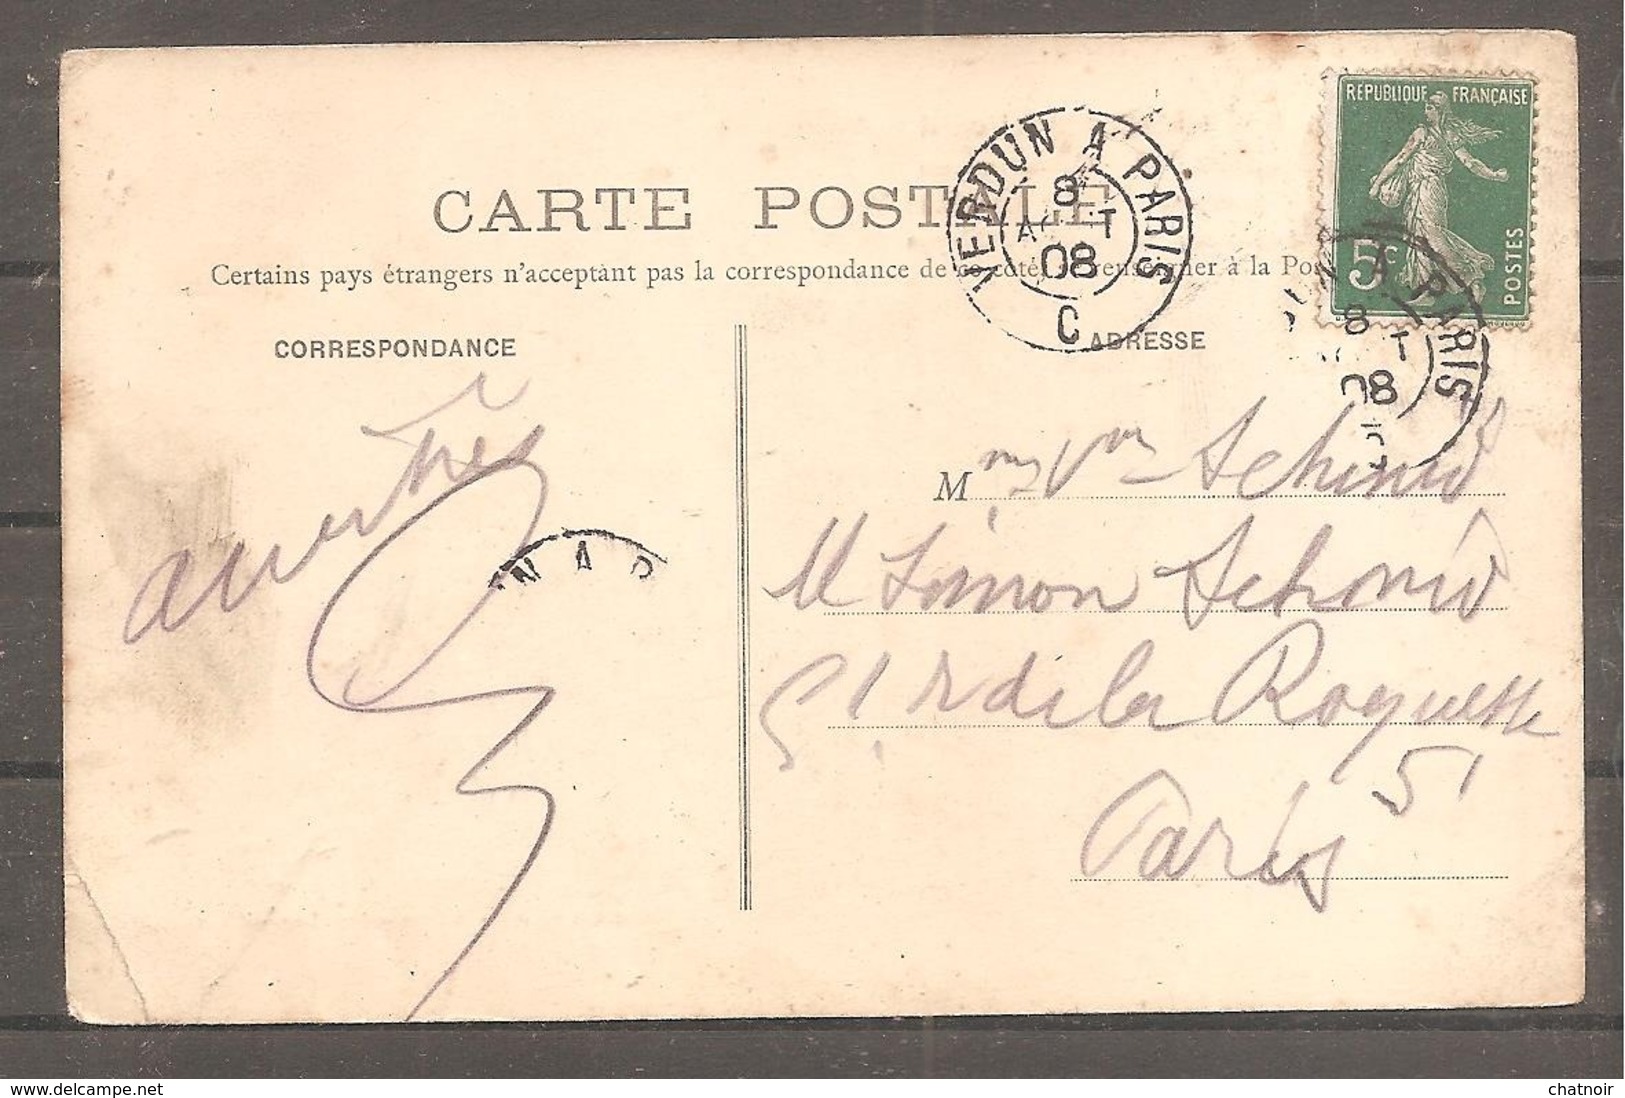 RÉPUBLIQUE FRANÇAISE
5c
POSTES
VERDUN A PARIS
8
AOUT
08
C
UN A PARIS
8
T
08
CARTE POSTALE
Certains pays étrangers n'acceptant pas la correspondance de ce côté, se renseigner à la Pos
CORRESPONDANCE
ADRESSE
N A P
Mme Vve Schmid
M Simon Schmid
51 r de la Roquette
51
Paris
www.delcampe.net
chatnoir